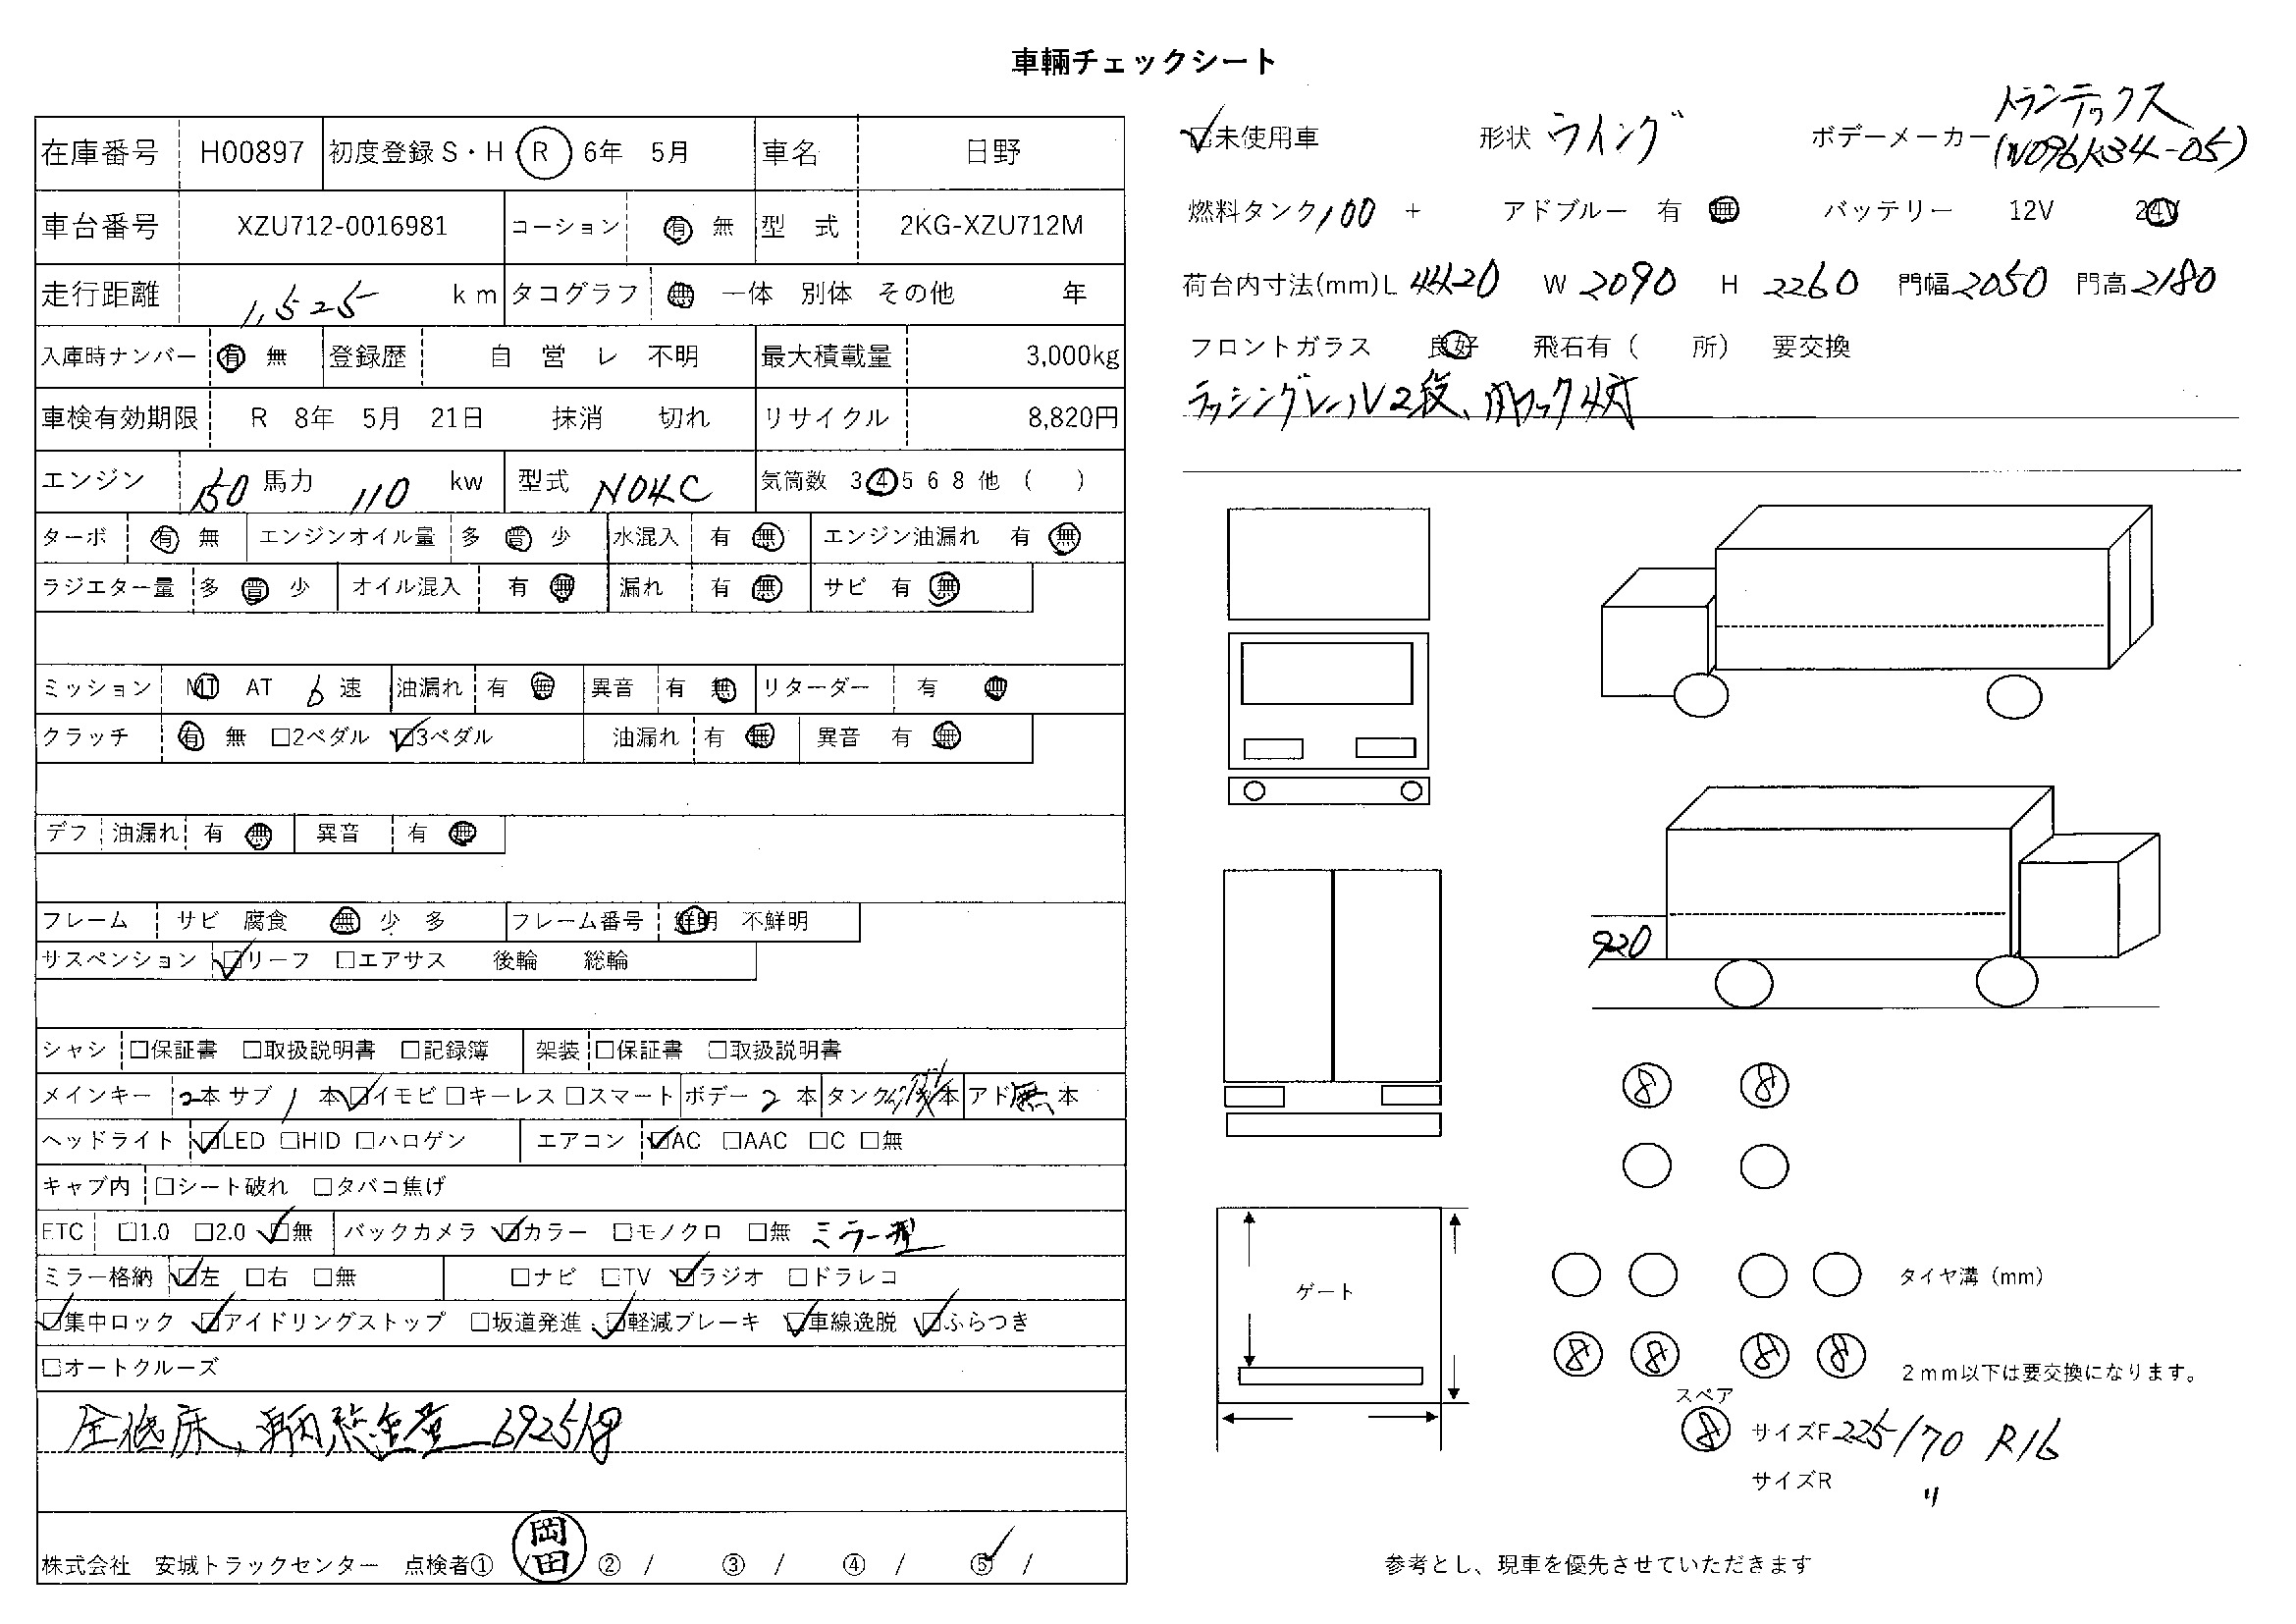 車輌チェックシート
在庫番号 H00897 初度登録 S・H・R 6年 5月 車名 日野
車台番号 XZU712-0016981 コーション 有 無 型 式 2KG-XZU712M
走行距離 1,525 km タコグラフ 無 一体 別体 その他 年
入庫時ナンバー 有 無 登録歴 自 営 レ 不明 最大積載量 3,000kg
車検有効期限 R 8年 5月 21日 抹消 切れ リサイクル 8,820円
エンジン 150 馬力 110 kw 型式 N04C 気筒数 3 4 5 6 8 他 ( )
ターボ 有 無 エンジンオイル量 多 普 少 水混入 有 無 エンジン油漏れ 有 無
ラジエター量 多 普 少 オイル混入 有 無 漏れ 有 無 サビ 有 無
ミッション MT AT 6 速 油漏れ 有 無 異音 有 無 リターダー 有 無
クラッチ 有 無 □2ペダル □3ペダル 油漏れ 有 無 異音 有 無
デフ 油漏れ 有 無 異音 有 無
フレーム サビ 腐食 無 少 多 フレーム番号 鮮明 不鮮明
サスペンション □リーフ □エアサス 後輪 総輪
シャシ □保証書 □取扱説明書 □記録簿 架装 □保証書 □取扱説明書
メインキー 2本 サブ 1 本 □イモビ □キーレス □スマート ボデー 2 本 タンク 本 アド 無 本
ヘッドライト □LED □HID □ハロゲン エアコン □AC □AAC □C □無
キャブ内 □シート破れ □タバコ焦げ
ETC □1.0 □2.0 □無 バックカメラ □カラー □モノクロ □無 ミラー型
ミラー格納 □左 □右 □無 □ナビ □TV □ラジオ □ドラレコ
□集中ロック □アイドリングストップ □坂道発進 □軽減ブレーキ □車線逸脱 □ふらつき
□オートクルーズ
全低床、車両総重量 6925kg
株式会社 安城トラックセンター 点検者① / 岡田 ② / ③ / ④ / ⑤ /
□未使用車 形状 ウイング ボデーメーカー トランテックス
(N096K34-05)
燃料タンク 100 + アドブルー 有 無 バッテリー 12V 24V
荷台内寸法(mm) L 4420 W 2090 H 2260 門幅 2050 門高 2180
フロントガラス 良好 飛石有 ( 所) 要交換
ラッシングレール2段、 フック4対
920
8 8
ゲート
タイヤ溝（mm）
8 8 8 8
2mm以下は要交換になります。
スペア
8
サイズF 225/70 R16
サイズR 〃
参考とし、現車を優先させていただきます